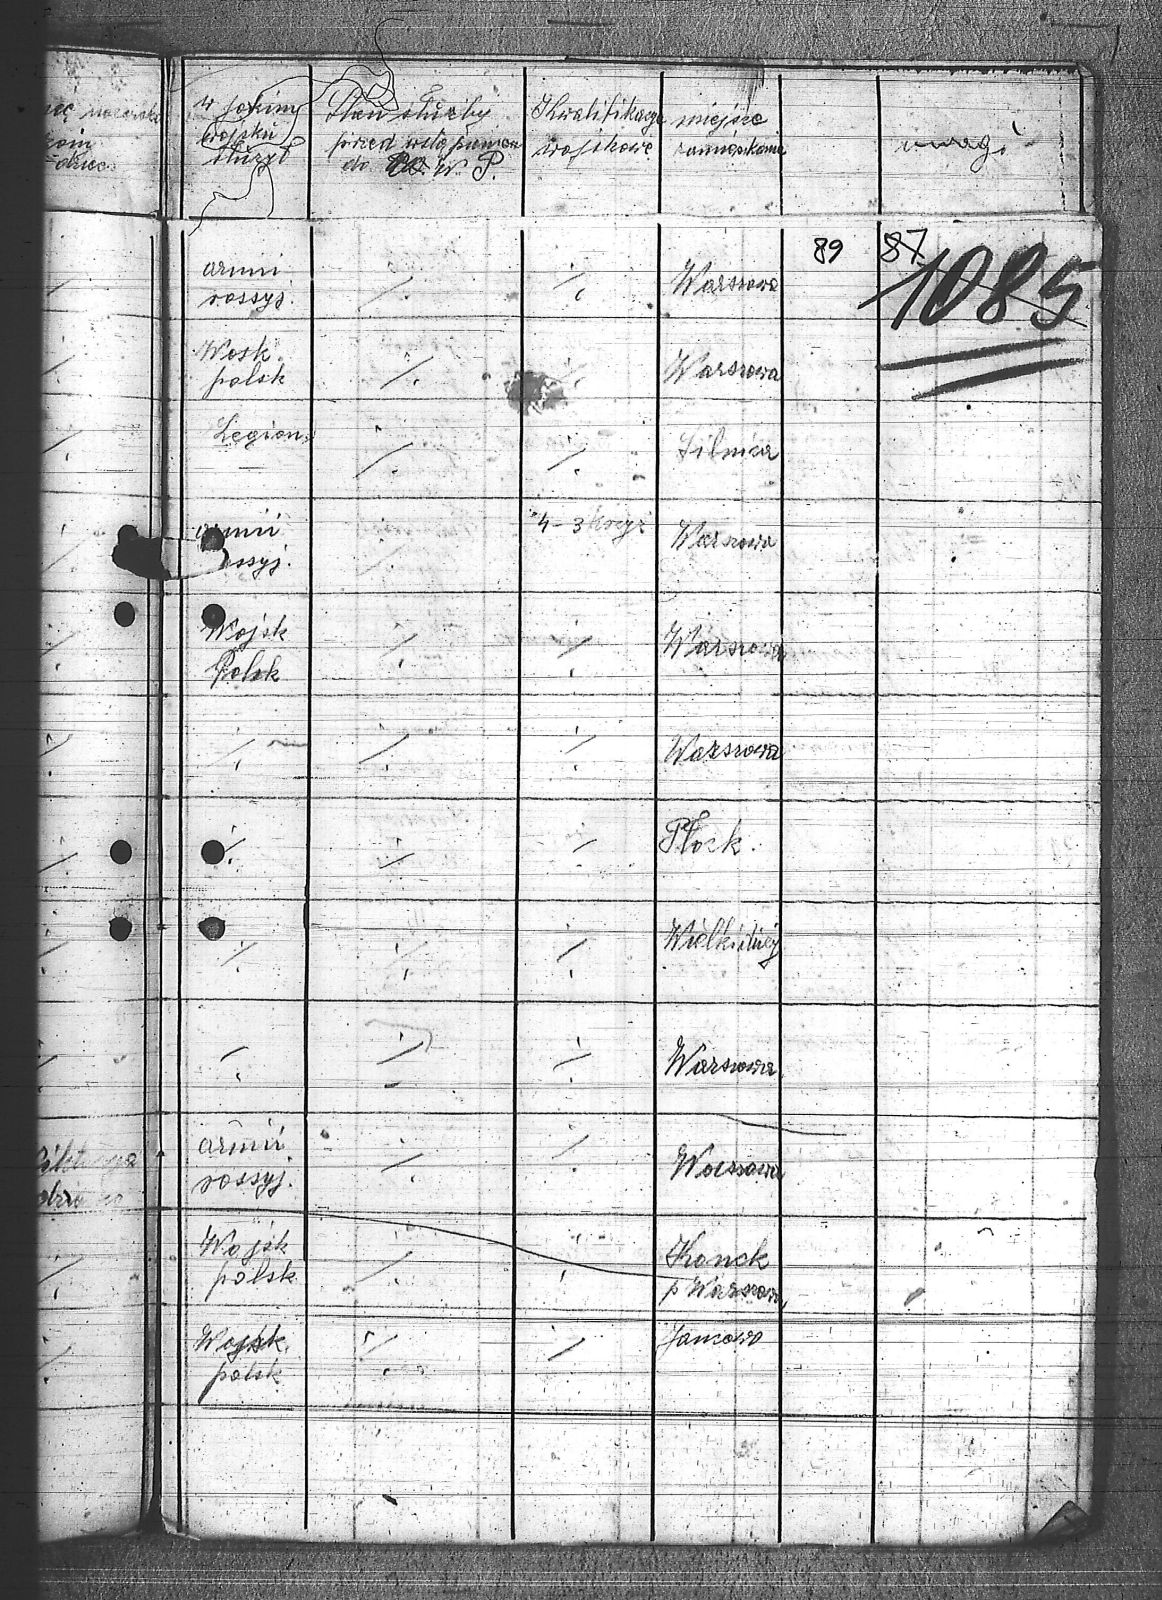 w jakim
wojsku
służył
Stan służby
przed wstąpieniem
do W. P.
Kwalifikacje
wojskowe
miejsce
zamieszkania
uwagi
89
87
1085
armii
rossyj.
Warszawa
Wosk
polsk
Warszawa
Legion.
armii
ossyj.
4-3 krzyż
Warszawa
Wojsk
Polsk
Warszawa
Warszawa
Płock.
Warszawa
armii
rossyj.
Warszawa
Wojsk
polsk
Konck
p Warszaw.
Wojsk.
polsk
Janowo